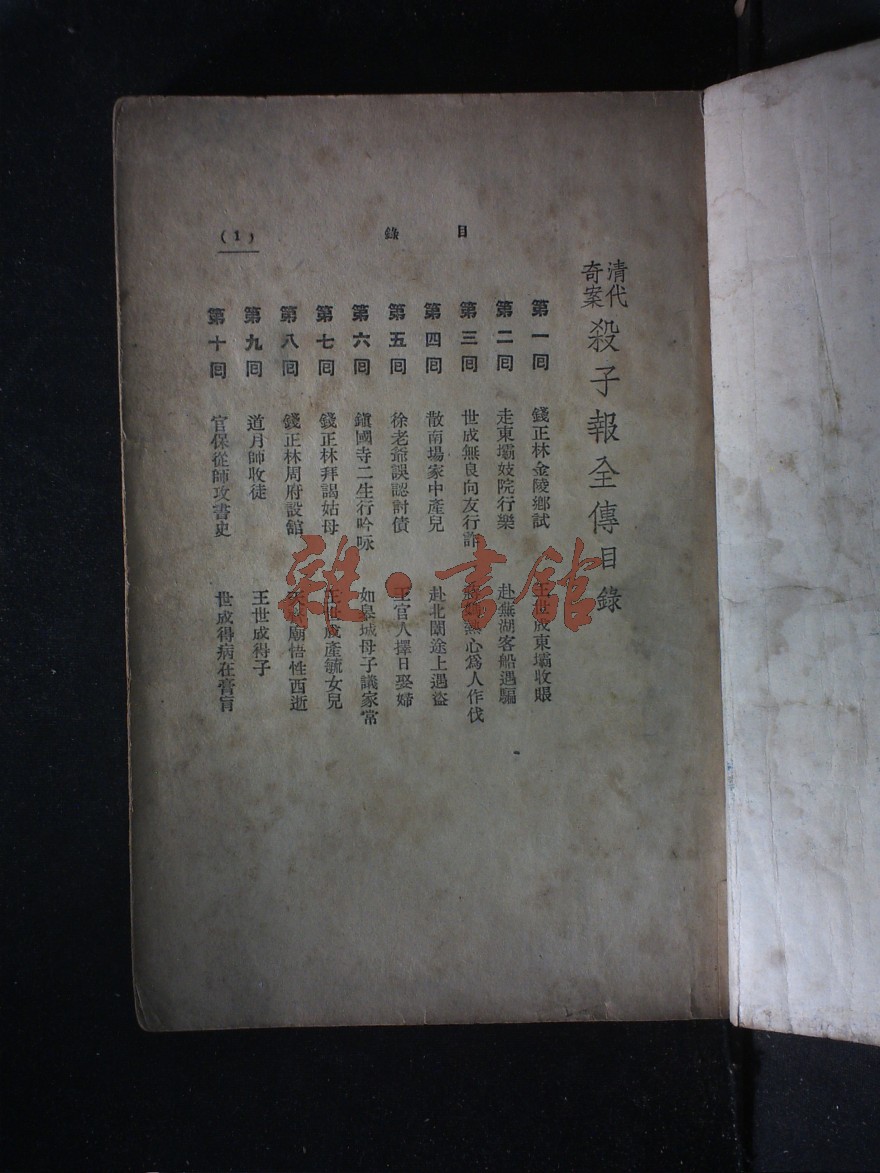 目錄
清代奇案 殺子報全傳目錄
第一回 錢正林金陵鄉試 王世成東壩收賬
第二回 走東壩妓院行樂 赴蕪湖客船遇騙
第三回 世成無良向友行詐 熱心為人作伐
第四回 散南場家中產兒 赴北闈途上遇盜
第五回 徐老爺誤認討債 王官人擇日娶婦
第六回 鎮國寺二生行吟咏 如皋城母子議家常
第七回 錢正林拜謁姑母 王世成產毓女兒
第八回 錢正林周府設館 廟悟性西逝
第九回 道月師收徒 王世成得子
第十回 官保從師攻書史 世成得病在膏肓
(1)
雜·書館